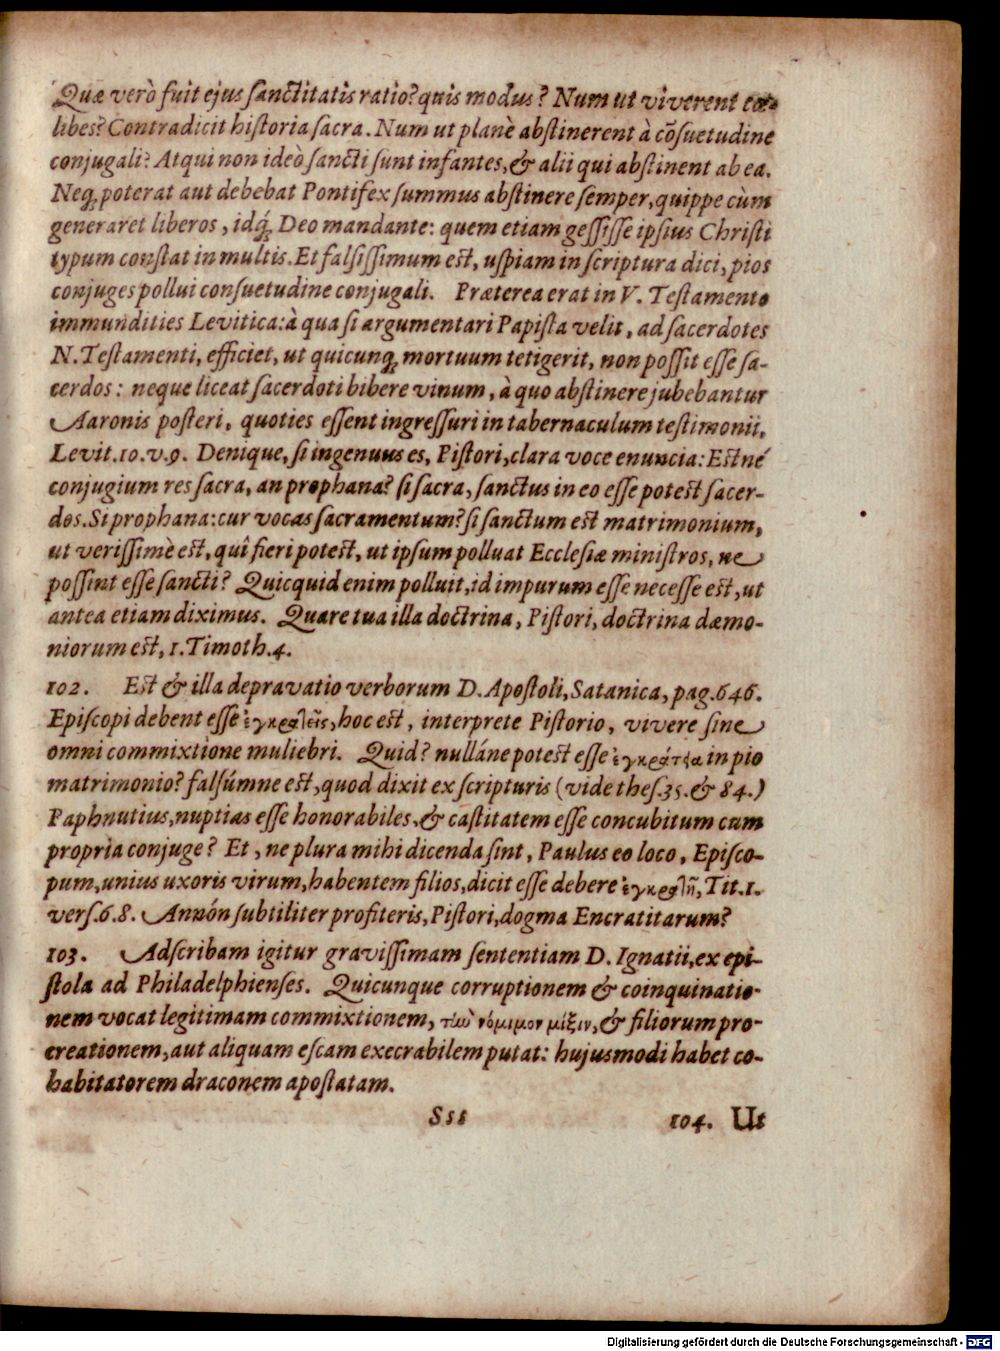 Quæ verò fuit ejus sanctitatis ratio? quis modus? Num ut viverent cœ-
libes? Contradicit historia sacra. Num ut planè abstinerent à cōsuetudine
conjugali? Atqui non ideò sancti sunt infantes, & alii qui abstinent ab ea.
Neq; poterat aut debebat Pontifex summus abstinere semper, quippe cùm
generaret liberos, idq́; Deo mandante: quem etiam gessisse ipsius Christi
typum constat in multis. Et falsissimum est, uspiam in scriptura dici, pios
conjuges pollui consuetudine conjugali. Præterea erat in V. Testamento
immundities Levitica: à qua si argumentari Papista velit, ad sacerdotes
N. Testamenti, efficiet, ut quicunq; mortuum tetigerit, non possit esse sa-
cerdos: neque liceat sacerdoti bibere vinum, à quo abstinere jubebantur
Aaronis posteri, quoties essent ingressuri in tabernaculum testimonii,
Levit.10.v.9. Denique, si ingenuus es, Pistori, clara voce enuncia: Estné
conjugium res sacra, an prophana? si sacra, sanctus in eo esse potest sacer-
dos. Si prophana: cur vocas sacramentum? si sanctum est matrimonium,
ut verissimè est, quî fieri potest, ut ipsum polluat Ecclesiæ ministros, ne
possint esse sancti? Quicquid enim polluit, id impurum esse necesse est, ut
antea etiam diximus. Quare tua illa doctrina, Pistori, doctrina dæmo-
niorum est, 1. Timoth.4.
102. Est & illa depravatio verborum D. Apostoli, Satanica, pag.646.
Episcopi debent esse ἐγκρατεῖς, hoc est, interprete Pistorio, vivere sine
omni commixtione muliebri. Quid? nulláne potest esse ἐγκράτεια in pio
matrimonio? falsúmne est, quod dixit ex scripturis (vide thes.35. & 84.)
Paphnutius, nuptias esse honorabiles, & castitatem esse concubitum cum
propria conjuge? Et, ne plura mihi dicenda sint, Paulus eo loco, Episco-
pum, unius uxoris virum, habentem filios, dicit esse debere ἐγκρατῆ, Tit.1.
vers.6.8. Annón subtiliter profiteris, Pistori, dogma Encratitarum?
103. Adscribam igitur gravissimam sententiam D. Ignatii, ex epi-
stola ad Philadelphienses. Quicunque corruptionem & coinquinatio-
nem vocat legitimam commixtionem, τὼ νόμιμον μίξιν, & filiorum pro-
creationem, aut aliquam escam execrabilem putat: hujusmodi habet co-
habitatorem draconem apostatam.
Sss 104. Ut
Digitalisierung gefördert durch die Deutsche Forschungsgemeinschaft - DFG